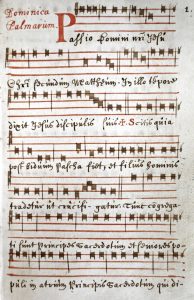 Dominica
Palmarum.
1.
Passio Domini nri Jesu
Christi secundum Mattheum. In illo tpore
dixit Jesus discipulis suis. Scitis quia
post biduum Pascha fiet, et filius hominis
tradetur ut crucifigatur. Tunc congrega-
ti sunt Principes Sacerdotum et seniores po-
puli in atrium Principis Sacerdotum qui di-